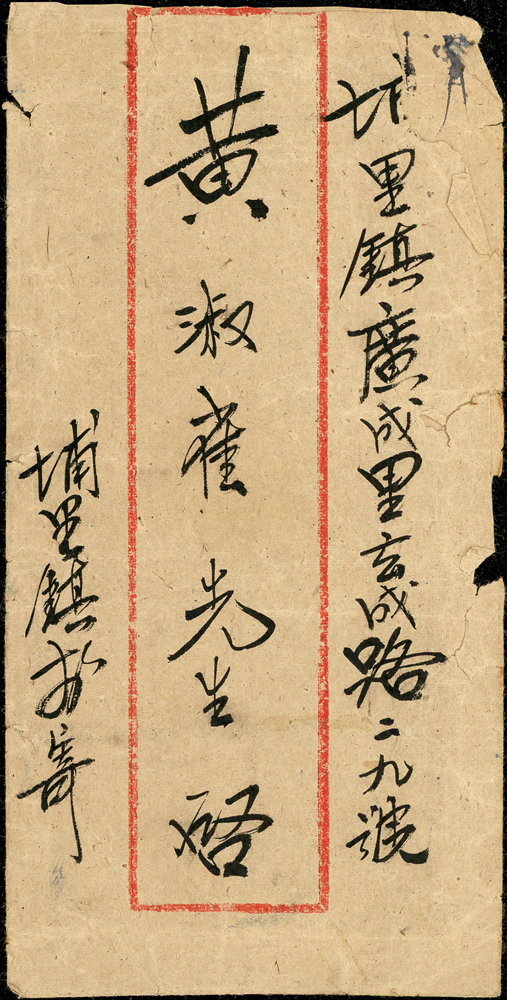 埔里鎮廣成里玄成路二九號
黃淑雀先生啓
埔里鎮扵寄